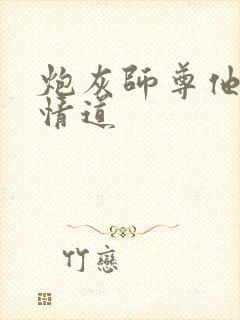 炮灰師尊他
情道
竹戀